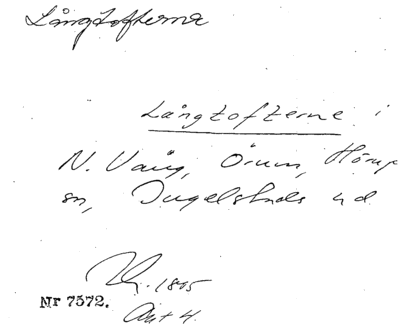 Långtofterne
Långtofterne i
N. Vång, Örum, Hörup
sn, Ingelstads hd
1805
Nr 7572.
Akt 4